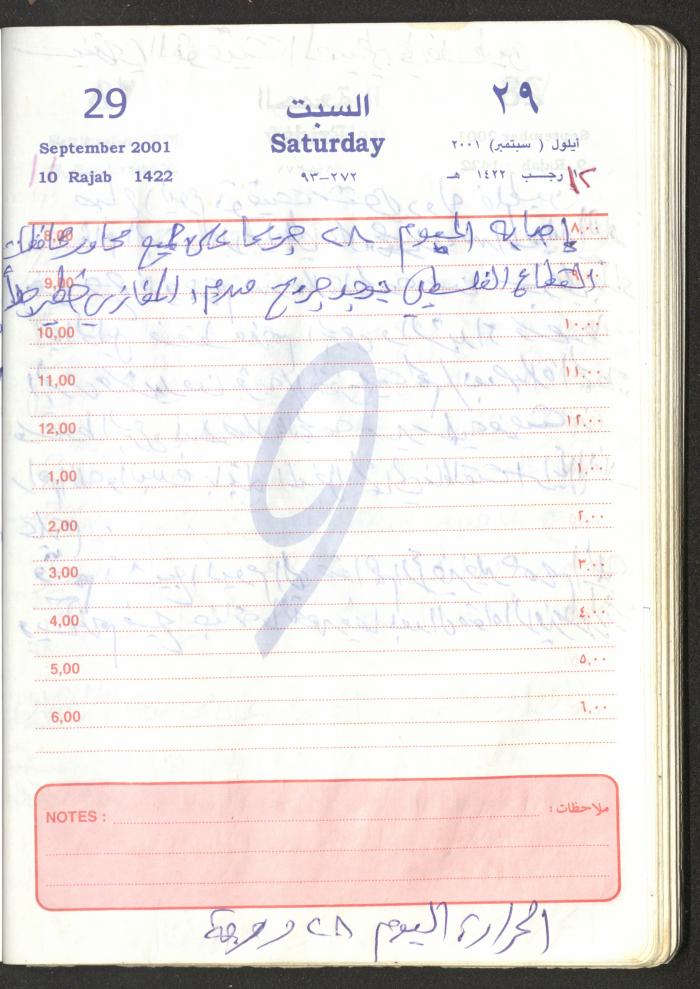 29 السبت ٢٩
September 2001 Saturday أيلول ( سبتمبر) ٢٠٠١
10 Rajab 1422 ٢٧٢–٩٣ رجب ١٤٢٢ هـ
١٢
8,00 إصابة اليوم ٢٨ جريحا على جميع محاور محافظات ٨,٠٠
9,00 القطاع الفلسطيني يوجد جريح من المغازي خطير جداً ٩,٠٠
10,00 ١٠,٠٠
11,00 ١١,٠٠
12,00 ١٢,٠٠
1,00 ١,٠٠
2,00 ٢,٠٠
3,00 ٣,٠٠
4,00 ٤,٠٠
5,00 ٥,٠٠
6,00 ٦,٠٠
9
NOTES : ملاحظات :
الحرارة اليوم ٢٨ درجة